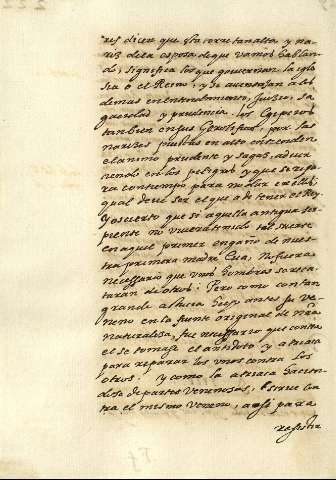 res dicen que esta torre tan alta y na
riz dela esposa de que vamos hablan
do, significa los que gouiernan la igle
sia o el Reino, y se auentajan a los
demas en entendimiento, juizio, sa
gacidad y prudencia. los Egipcios
tanbien en sus Gerolificos, por las
narizes puestas en alto entienden
el animo prudente y sagaz, aduir
tiendo en los peligros y que se repa
ra con tiempo para no dar en ellos
qual deue ser el que a de tener el Rey
Y es cierto que si aquella antigua ser
piente no vuiera tenido tal suerte
en aquel primer engaño de nues
tra primera madre Eua, no fuera
necessario que vnos hombres se reca
taran de otros: Pero como con tan
grande astucia dexo antes su ve
neno en la fuente original de nra
naturaleza, fue necessareo que contra
el se tomase el antidoto y atriaca
para reparar los vnos contra los
otros. y como la atriaca hacien
dose de partes venenosas, es contra
el mismo veneno, assi para
resistir